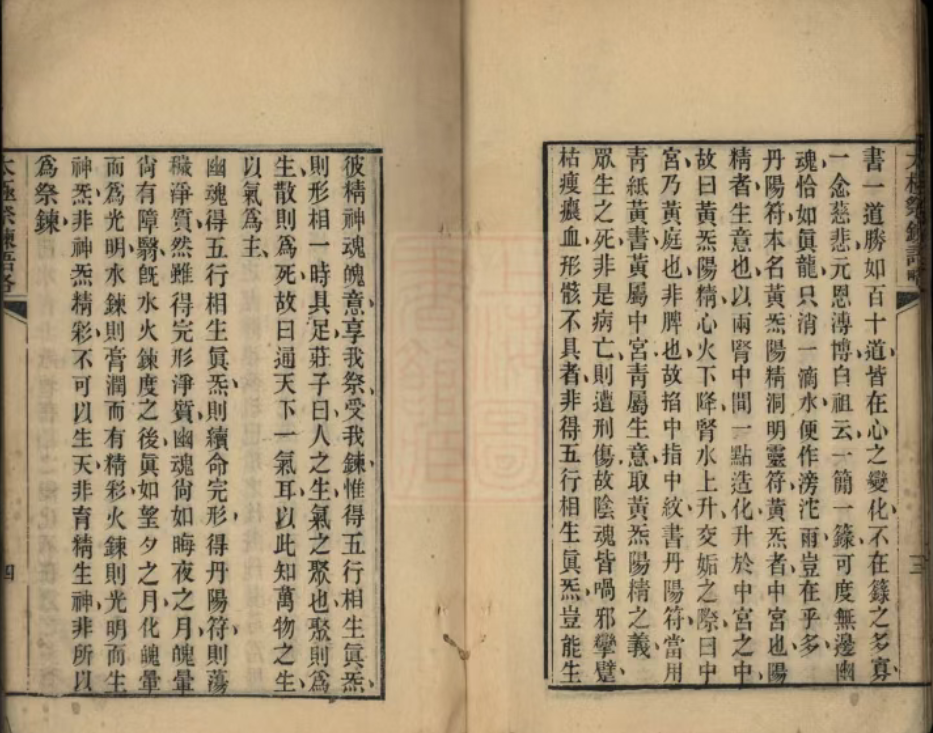 書一道勝如百十道皆在心之變化不在籙之多寡
一念慈悲元恩溥博白祖云一簡一籙可度無邊幽
魂恰如眞龍只消一滴水便作滂沱雨豈在乎多
丹陽符本名黃炁陽精洞明靈符黃炁者中宮也陽
精者生意也以兩腎中間一點造化升於中宮之中
故曰黃炁陽精心火下降腎水上升交姤之際曰中
宮乃黃庭也非脾也故掐中指中紋書丹陽符當用
靑紙黃書黃屬中宮靑屬生意取黃炁陽精之義
眾生之死非是病亡則遭刑傷故陰魂皆喎邪攣躄
枯瘦癀血形骸不具者非得五行相生眞炁豈能生
三
彼精神魂魄意享我祭受我鍊惟得五行相生眞炁
則形相一時具足莊子曰人之生氣之聚也聚則爲
生散則爲死故曰通天下一氣耳以此知萬物之生
以氣爲主
幽魂得五行相生眞炁則續命完形得丹陽符則蕩
穢淨質然雖得完形淨質幽魂尙如晦夜之月魄暈
尙有障翳旣水火鍊度之後眞如望夕之月化魄暈
而爲光明水鍊則膏潤而有精彩火鍊則光明而生
神炁非神炁精彩不可以生天非育精生神非所以
爲祭鍊
太極祭鍊語略
四